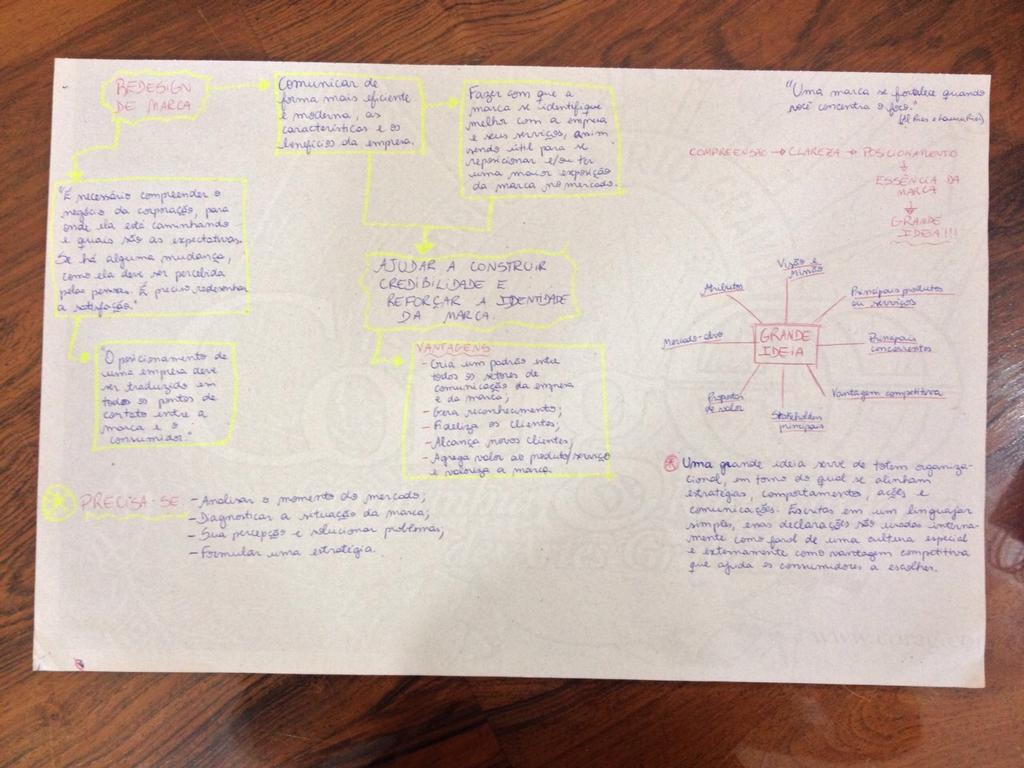 REDESIGN
DE MARCA
Comunicar de
forma mais eficiente
e moderna, as
características e os
benefícios da empresa.
Fazer com que a
marca se identifique
melhor com a empresa
e seus serviços, assim
sendo útil para se
reposicionar e/ou ter
uma maior exposição
da marca no mercado.
"É necessário compreender o
negócio da corporação, para
onde ela está caminhando
e quais são as expectativas.
Se há alguma mudança,
como ela deve ser percebida
pelas pessoas. É preciso redesenhar
a satisfação."
"O posicionamento de
uma empresa deve
ser traduzido em
todos os pontos de
contato entre a
marca e o
consumidor."
AJUDAR A CONSTRUIR
CREDIBILIDADE E
REFORÇAR A IDENTIDADE
DA MARCA.
VANTAGENS
- Cria um padrão entre
todos os setores de
comunicação da empresa
e da marca;
- Gera reconhecimento;
- Fideliza os clientes;
- Alcança novos clientes;
- Agrega valor ao produto/serviço
e valoriza a marca.
PRECISA-SE
- Analisar o momento do mercado;
- Diagnosticar a situação da marca;
- Sua percepção e solucionar problemas;
- Formular uma estratégia.
"Uma marca se fortalece quando
você concentra o foco."
(Al Ries e Laura Ries)
COMPREENSÃO → CLAREZA → POSICIONAMENTO
ESSÊNCIA DA
MARCA
GRANDE
IDEIA!!!
Visão e
Missão
Atributos
Principais produtos
ou serviços
Mercado-alvo
GRANDE
IDEIA
Principais
concorrentes
Proposta
de valor
Stakeholders
principais
Vantagem competitiva
* Uma grande ideia serve de totem organiza-
cional, em torno do qual se alinham
estratégias, comportamento, ações e
comunicações. Escritas em um linguajar
simples, essas declarações são usadas interna-
mente como farol de uma cultura especial
e externamente como vantagem competitiva
que ajuda os consumidores a escolher.